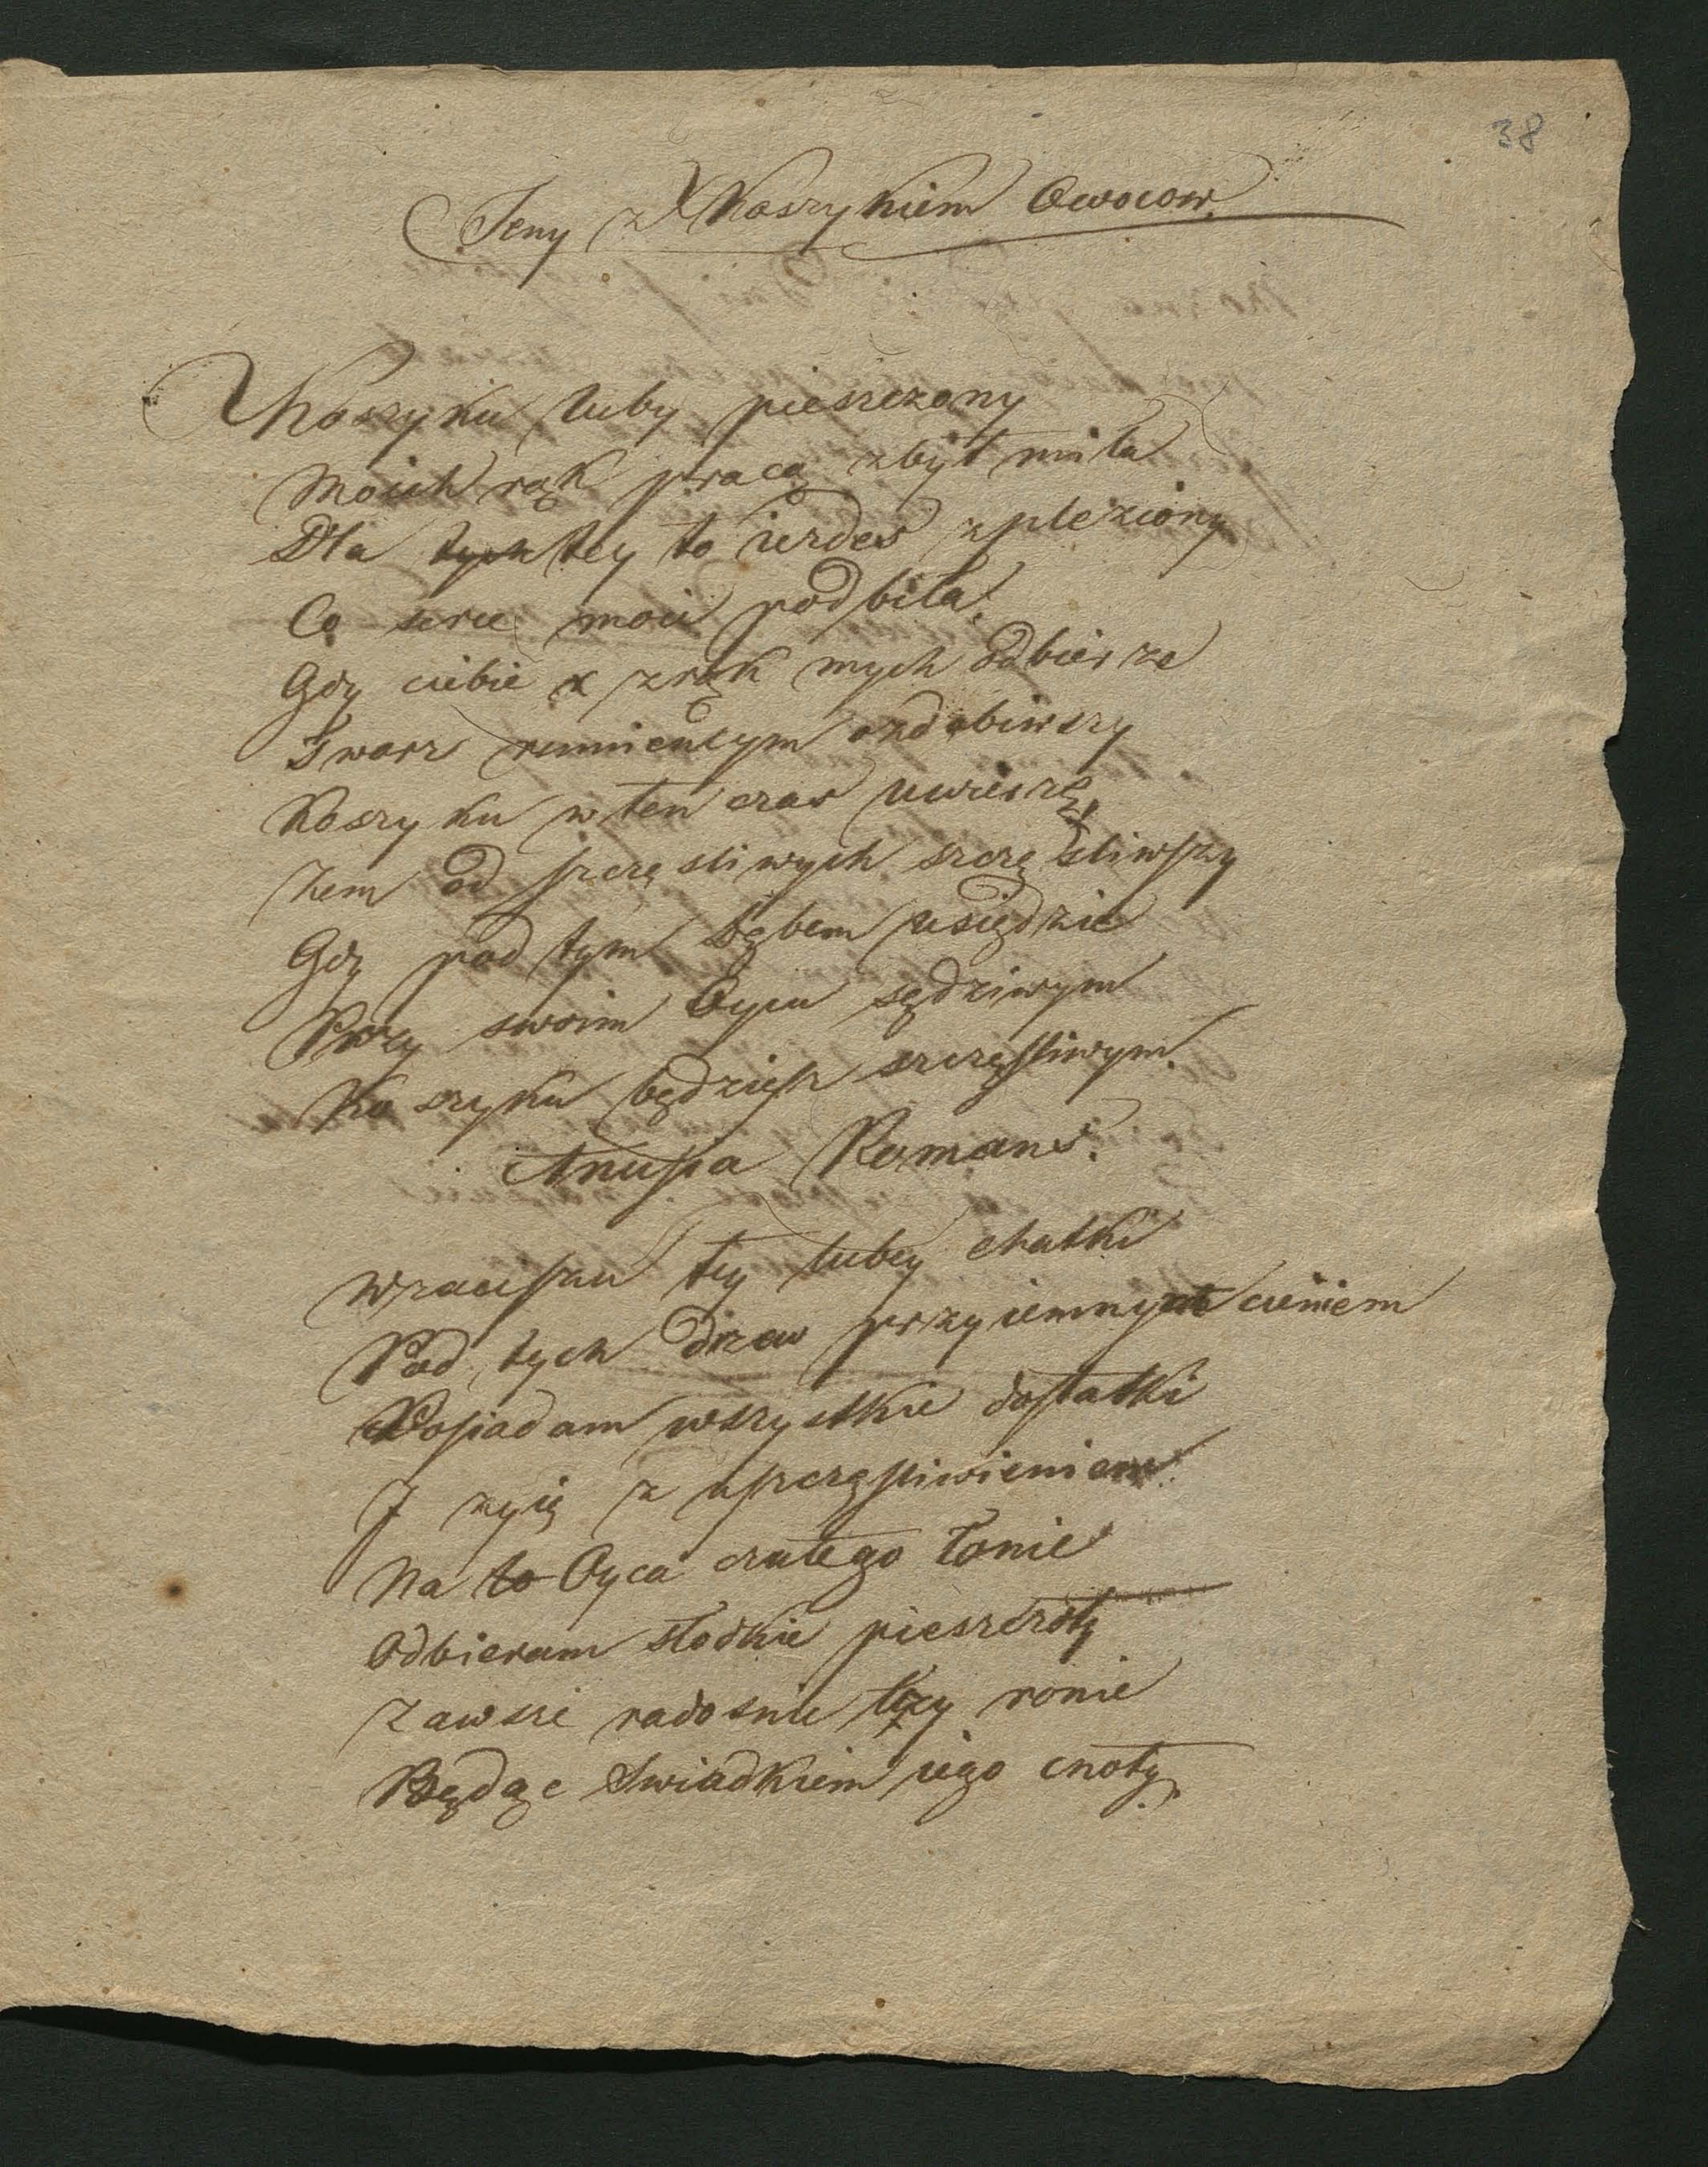 38
Jeny z Koszykiem Owocow.
Koszyku luby pieszczony
Moich rąk pracą zbyt miła
Dla tych tey to iezdes zpleziony
Co serce moie podbiła.
Gdy ciebie x z rąk mych odbierze
Twarz rumieńcym ozdobiwszy
Koszyku w ten czas uwierzę
Żem od szczęsliwych szczęsliwszy
Gdy pod tym dębem usiędzie
Przy swoim Oycu sędziwym
Koszyku będziesz szczęsliwym.
Anusia Romans.
W zaciszu tey lubey chatki
Pod tych drzew przyiemnym cieniem
Posiadam wszystkie dostatki
I zyię z uszczęsliwieniem.
Na to Oyca czułego łonie
Odbieram słodkie pieszczoty
Zawsze radosnie łzy ronie
Będąc Swiadkiem iego cnoty.